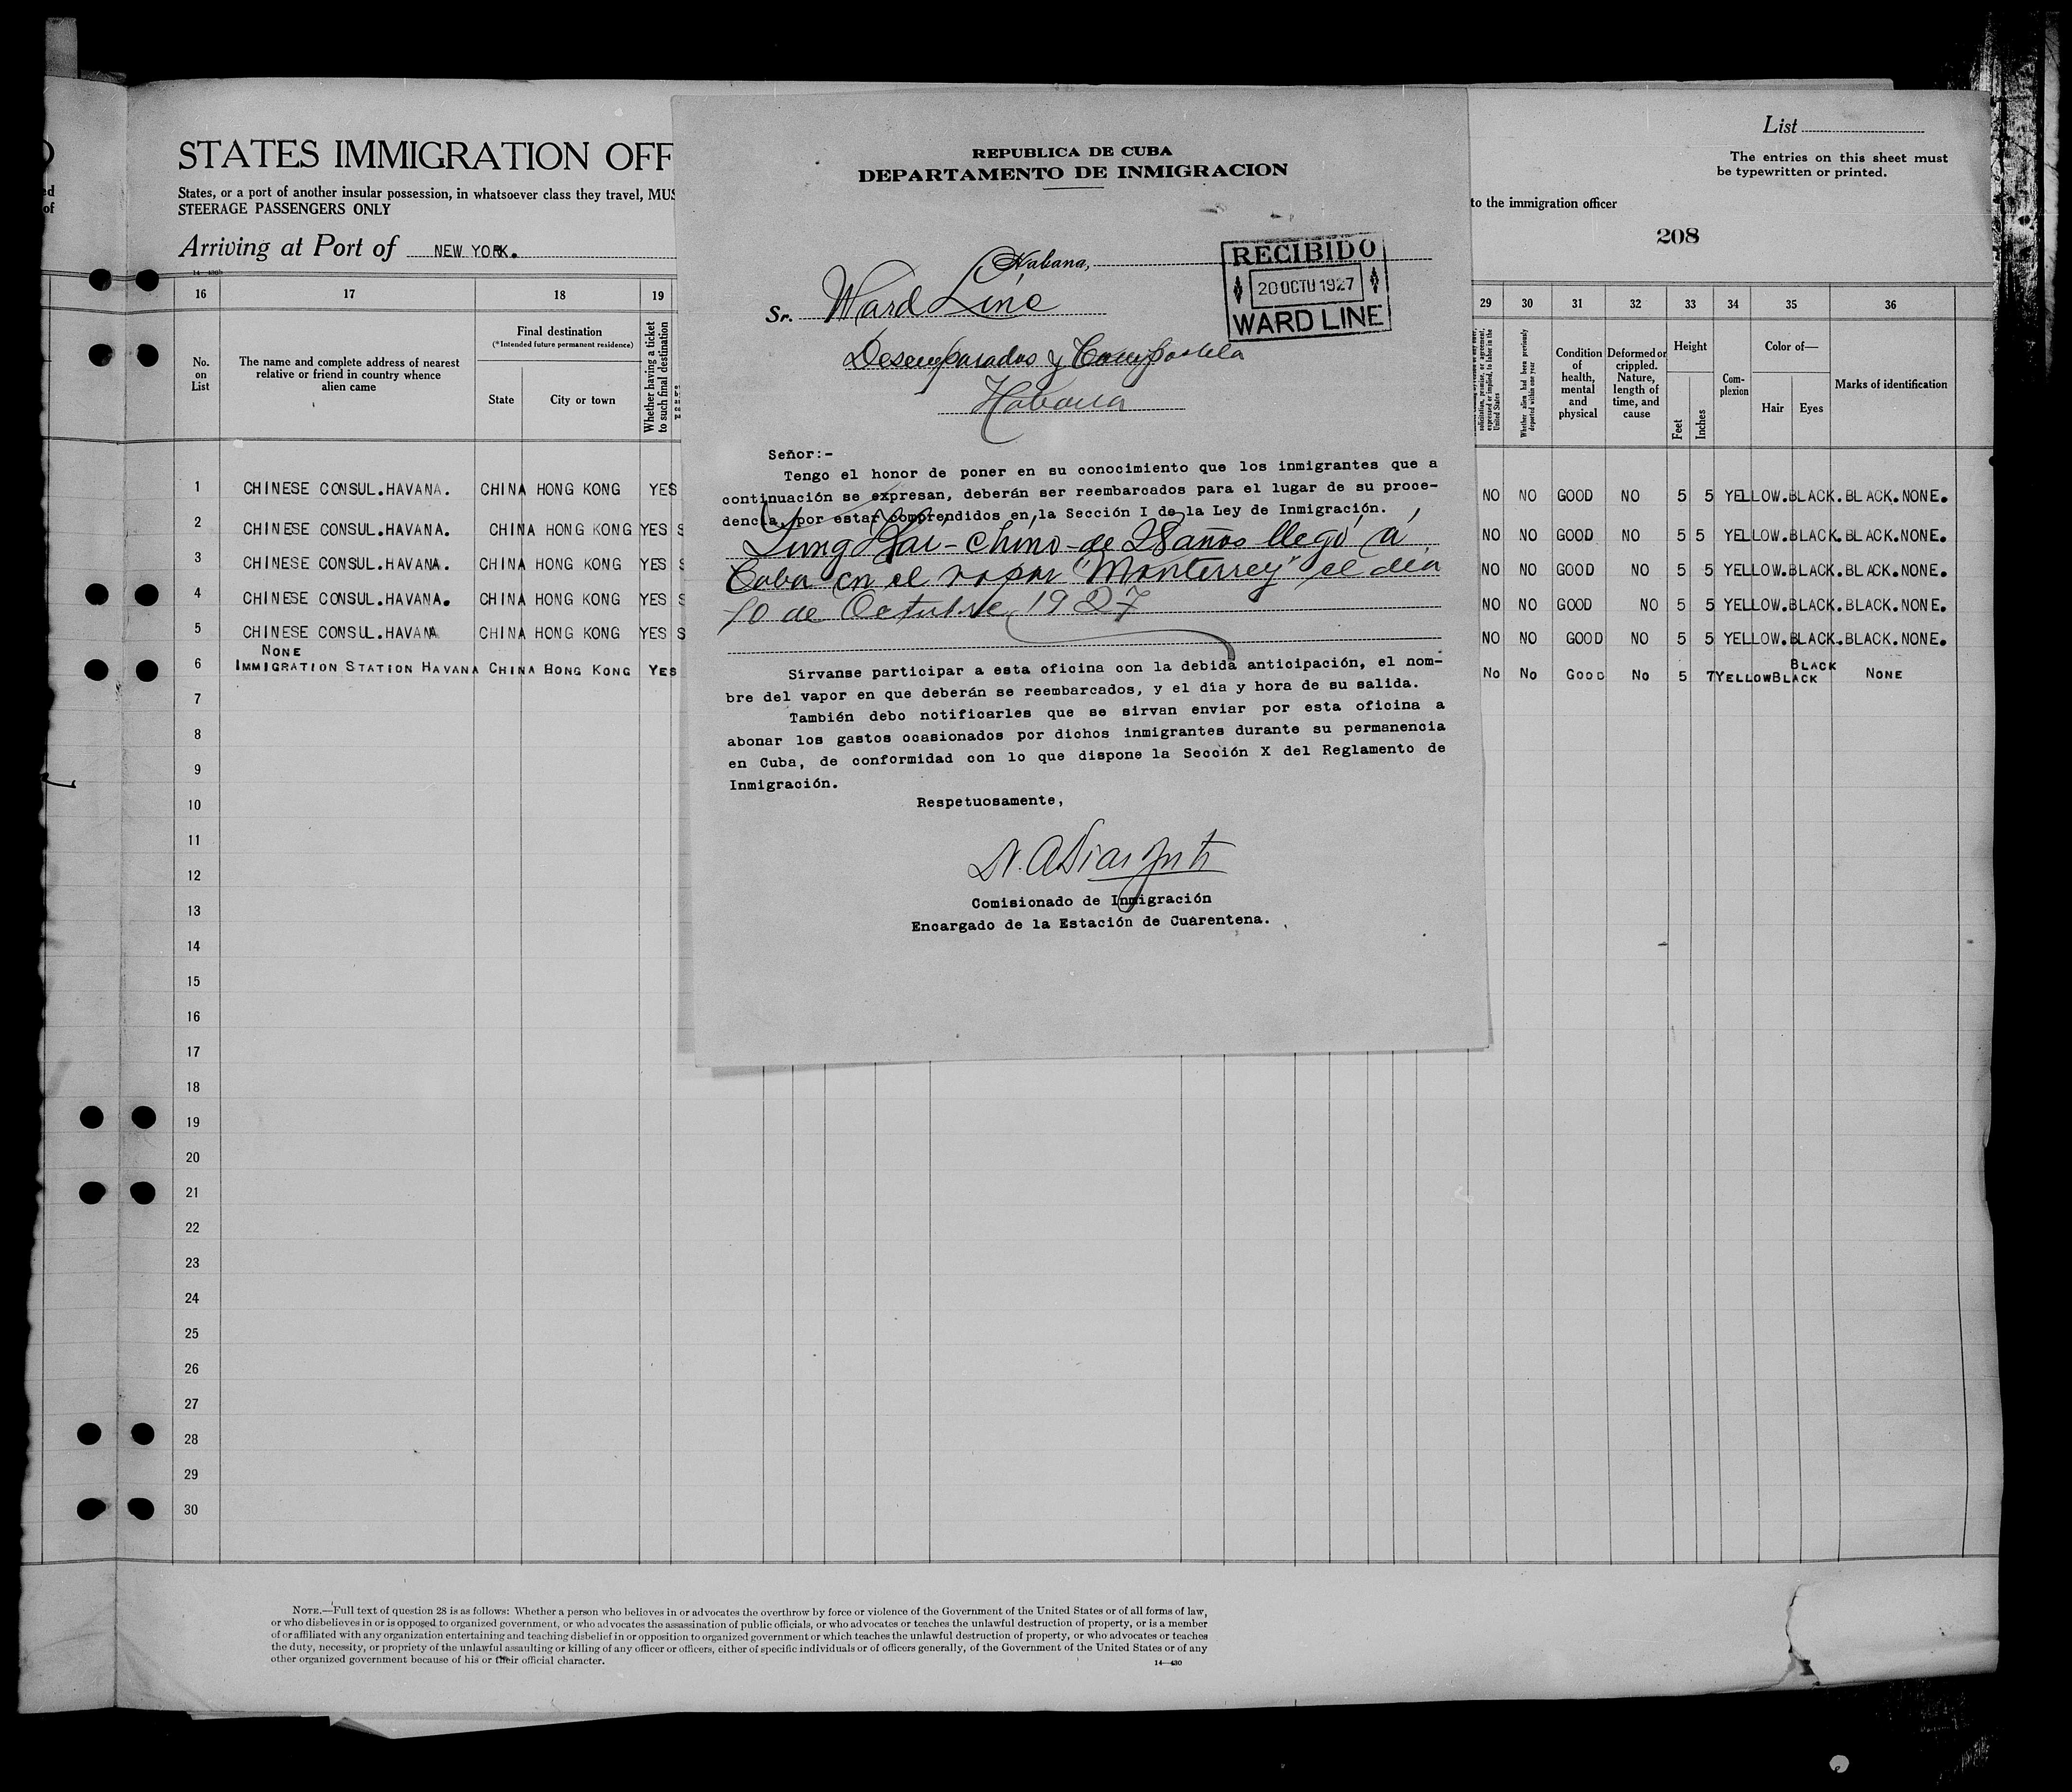 STATES IMMIGRATION OFF
States, or a port of another insular possession, in whatsoever class they travel, MUS
STEERAGE PASSENGERS ONLY
Arriving at Port of NEW YORK.
List
The entries on this sheet must
be typewritten or printed.
to the immigration officer
208
REPUBLICA DE CUBA
DEPARTAMENTO DE INMIGRACION
Habana,
RECIBIDO
20 OCTU 1927
WARD LINE
Sr. Ward Line
Desamparados y Compostela
Habana
Señor:-
Tengo el honor de poner en su conocimiento que los inmigrantes que a
continuación se expresan, deberán ser reembarcados para el lugar de su proce-
dencia, por estar comprendidos en la Sección I de la Ley de Inmigración.
Lung Hai - chino - de 28 años llegó á
Cuba en el vapor "Monterrey" el día
10 de Octubre 1927
Sírvanse participar a esta oficina con la debida anticipación, el nom-
bre del vapor en que deberán se reembarcados, y el día y hora de su salida.
También debo notificarles que se sirvan enviar por esta oficina a
abonar los gastos ocasionados por dichos inmigrantes durante su permanencia
en Cuba, de conformidad con lo que dispone la Sección X del Reglamento de
Inmigración.
Respetuosamente,
Comisionado de Inmigración
Encargado de la Estación de Cuarentena.
16 17 18 19 29 30 31 32 33 34 35 36
No. on List
The name and complete address of nearest
relative or friend in country whence
alien came
Final destination
(*Intended future permanent residence)
State
City or town
Whether having a ticket
to such final destination
solicitation, promise, or agreement,
expressed or implied, to labor in the
United States
Whether alien had been previously
deported within one year
Condition
of
health,
mental
and
physical
Deformed or
crippled.
Nature,
length of
time, and
cause
Height
Feet
Inches
Com-
plexion
Color of—
Hair
Eyes
Marks of identification
1 CHINESE CONSUL.HAVANA. CHINA HONG KONG YES NO NO GOOD NO 5 5 YELLOW.BLACK.BLACK.NONE.
2 CHINESE CONSUL.HAVANA. CHINA HONG KONG YES S NO NO GOOD NO 5 5 YELLOW.BLACK.BLACK.NONE.
3 CHINESE CONSUL.HAVANA. CHINA HONG KONG YES S NO NO GOOD NO 5 5 YELLOW.BLACK.BLACK.NONE.
4 CHINESE CONSUL.HAVANA. CHINA HONG KONG YES S NO NO GOOD NO 5 5 YELLOW.BLACK.BLACK.NONE.
5 CHINESE CONSUL.HAVANA CHINA HONG KONG YES S NO NO GOOD NO 5 5 YELLOW.BLACK.BLACK.NONE.
NONE
6 IMMIGRATION STATION HAVANA CHINA HONG KONG YES NO NO GOOD NO 5 7 YELLOW BLACK BLACK NONE
7
8
9
10
11
12
13
14
15
16
17
18
19
20
21
22
23
24
25
26
27
28
29
30
NOTE.—Full text of question 28 is as follows: Whether a person who believes in or advocates the overthrow by force or violence of the Government of the United States or of all forms of law,
or who disbelieves in or is opposed to organized government, or who advocates the assassination of public officials, or who advocates or teaches the unlawful destruction of property, or is a member
of or affiliated with any organization entertaining and teaching disbelief in or opposition to organized government or which teaches the unlawful destruction of property, or who advocates or teaches
the duty, necessity, or propriety of the unlawful assaulting or killing of any officer or officers, either of specific individuals or of officers generally, of the Government of the United States or of any
other organized government because of his or their official character.
14—430